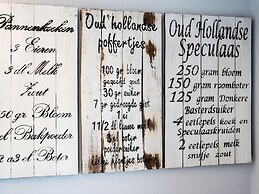 Pannenkoeken
3 Eieren
3 dl Melk
Zout
250 gr Bloem
el Bakpoeder
a 3 el Boter
Oud hollandse
poffertjes
100 gr bloem
gezeefd
30 gr suiker
7 gr gedroogde gist
1 ei
1 1/2 dl lauwe melk
boter
Oud Hollandse
Speculaas
250 gram bloem
150 gram roomboter
125 gram Donkere
Basterdsuiker
4 eetlepels koek en
Speculaaskruiden
2 eetlepels melk
snufje zout